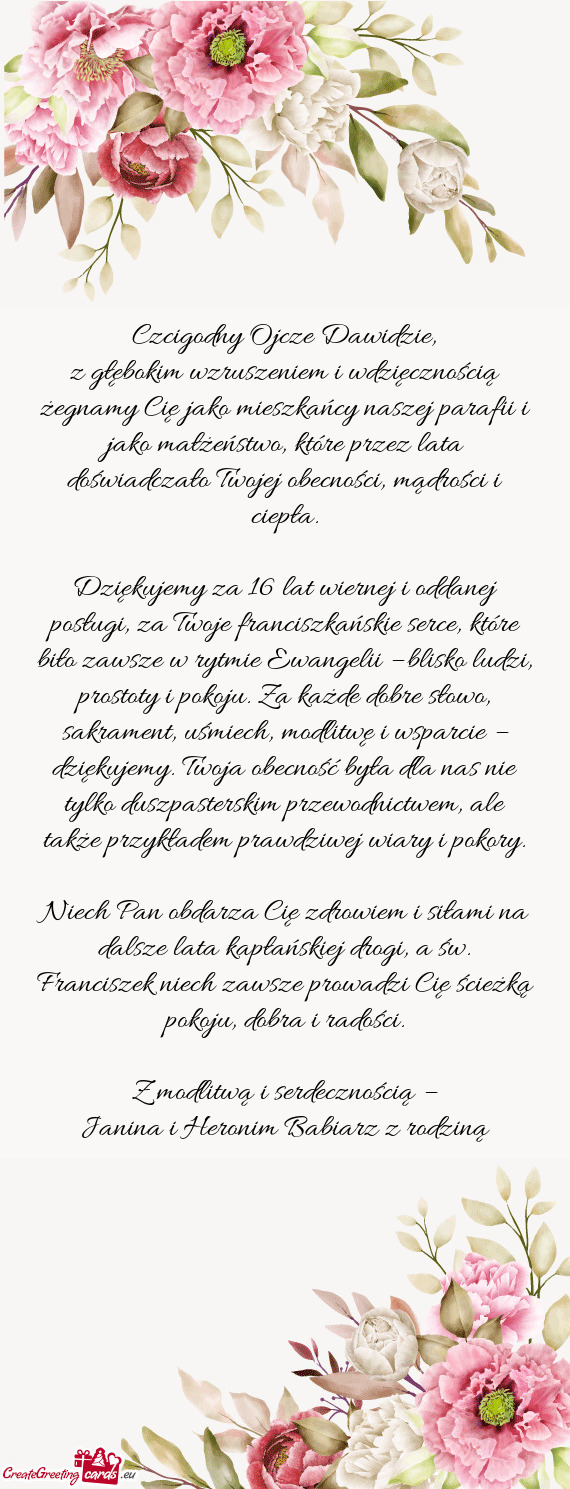 Czcigodny Ojcze Dawidzie,
z głębokim wzruszeniem i wdzięcznością
żegnamy Cię jako mieszkańcy naszej parafii i
jako małżeństwo, które przez lata
doświadczało Twojej obecności, mądrości i
ciepła.

Dziękujemy za 16 lat wiernej i oddanej
posługi, za Twoje franciszkańskie serce, które
biło zawsze w rytmie Ewangelii – blisko ludzi,
prostoty i pokoju. Za każde dobre słowo,
sakrament, uśmiech, modlitwę i wsparcie –
dziękujemy. Twoja obecność była dla nas nie
tylko duszpasterskim przewodnictwem, ale
także przykładem prawdziwej wiary i pokory.

Niech Pan obdarza Cię zdrowiem i siłami na
dalsze lata kapłańskiej drogi, a św.
Franciszek niech zawsze prowadzi Cię ścieżką
pokoju, dobra i radości.

Z modlitwą i serdecznością –
Janina i Heronim Babiarz z rodziną
CreateGreeting cards .eu